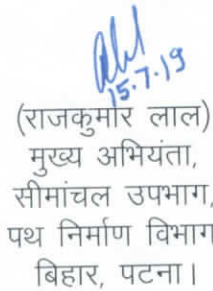 15.7.19
(राजकुमार लाल)
मुख्य अभियंता,
सीमांचल उपभाग,
पथ निर्माण विभाग
बिहार, पटना।